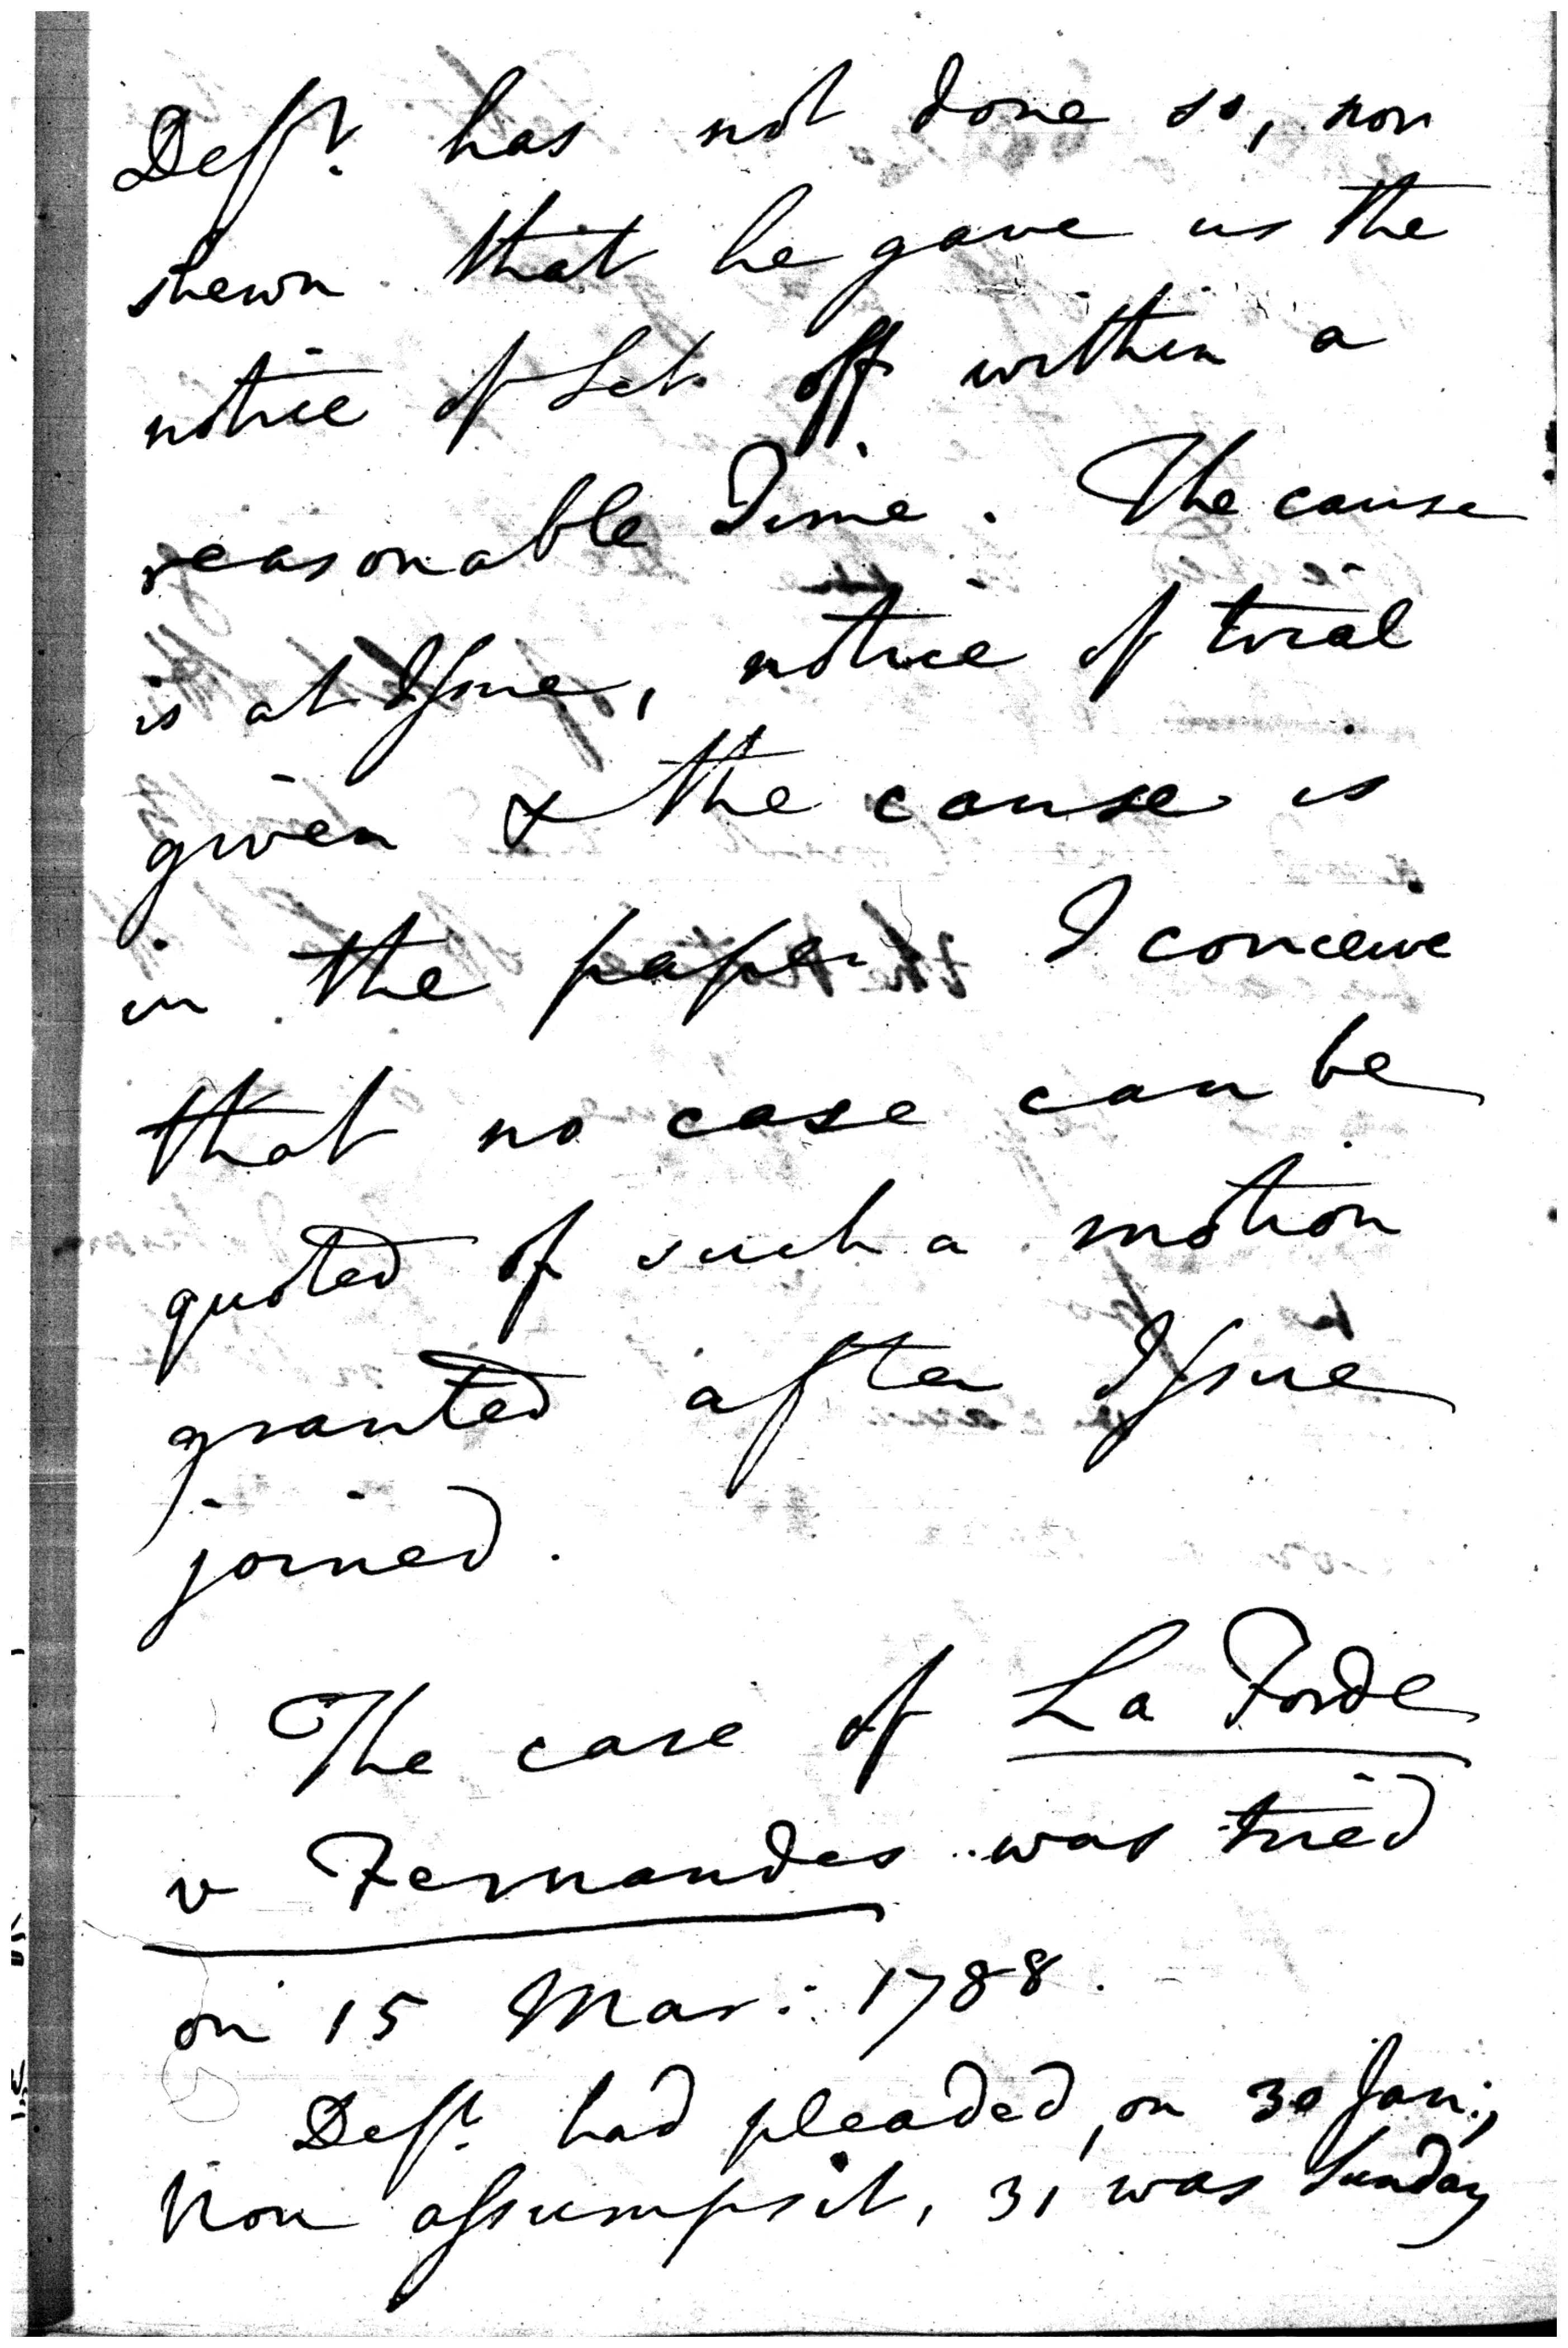 Deft. has not done so, nor
shewn that he gave us the
notice of Set off within a
reasonable Time. The cause
is at Issue, notice of trial
given & the cause is
in the paper. I conceive
that no case can be
quoted of such a motion
granted after Issue
joined.
The case of La Forde
v Fernandes was tried
on 15 Mar: 1788.
Deft. had pleaded, on 30 Jan:,
Non assumpsit, 31 was Sunday